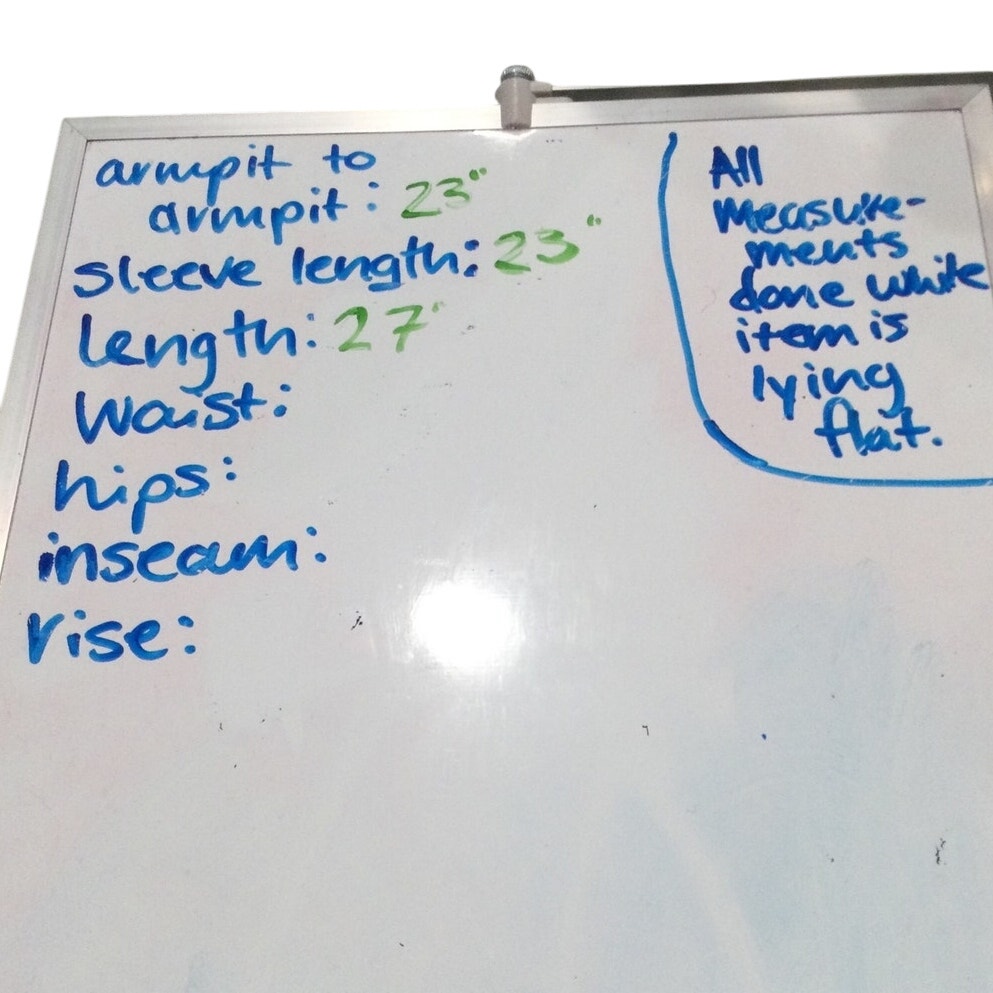 armpit to
armpit: 23"
sleeve length: 23"
length: 27"
Waist:
hips:
inseam:
rise:
All
measure-
ments
done while
item is
lying
flat.